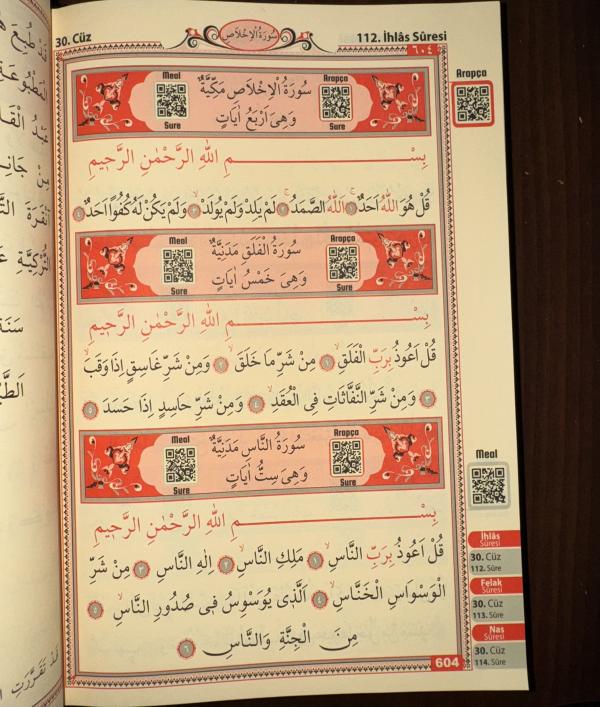 30. Cüz
سُورَةُ الْاِخْلَاصِ
112. İhlâs Sûresi
٦٠٤
Meal
Sure
سُورَةُ الْاِخْلَاصِ مَكِّيَّةٌ
وَهِىَ اَرْبَعُ اٰيَاتٍ
Arapça
Sure
Arapça
بِسْمِ اللّٰهِ الرَّحْمٰنِ الرَّحٖيمِ
قُلْ هُوَ اللّٰهُ اَحَدٌۚ ﴿١﴾ اَللّٰهُ الصَّمَدُۚ ﴿٢﴾ لَمْ يَلِدْ وَلَمْ يُولَدْۙ ﴿٣﴾ وَلَمْ يَكُنْ لَهُ كُفُوًا اَحَدٌ ﴿٤﴾
Meal
Sure
سُورَةُ الْفَلَقِ مَدَنِيَّةٌ
وَهِىَ خَمْسُ اٰيَاتٍ
Arapça
Sure
بِسْمِ اللّٰهِ الرَّحْمٰنِ الرَّحٖيمِ
قُلْ اَعُوذُ بِرَبِّ الْفَلَقِۙ ﴿١﴾ مِنْ شَرِّ مَا خَلَقَۙ ﴿٢﴾ وَمِنْ شَرِّ غَاسِقٍ اِذَا وَقَبَۙ
﴿٣﴾ وَمِنْ شَرِّ النَّفَّاثَاتِ فِى الْعُقَدِۙ ﴿٤﴾ وَمِنْ شَرِّ حَاسِدٍ اِذَا حَسَدَ ﴿٥﴾
Meal
Sure
سُورَةُ النَّاسِ مَدَنِيَّةٌ
وَهِىَ سِتُّ اٰيَاتٍ
Arapça
Sure
Meal
بِسْمِ اللّٰهِ الرَّحْمٰنِ الرَّحٖيمِ
قُلْ اَعُوذُ بِرَبِّ النَّاسِۙ ﴿١﴾ مَلِكِ النَّاسِۙ ﴿٢﴾ اِلٰهِ النَّاسِۙ ﴿٣﴾ مِنْ شَرِّ
الْوَسْوَاسِ الْخَنَّاسِۙ ﴿٤﴾ اَلَّذٖى يُوَسْوِسُ فٖى صُدُورِ النَّاسِۙ ﴿٥﴾
مِنَ الْجِنَّةِ وَالنَّاسِ ﴿٦﴾
604
İhlâs
Sûresi
30. Cüz
112. Sûre
Felak
Sûresi
30. Cüz
113. Sûre
Nas
Sûresi
30. Cüz
114. Sûre